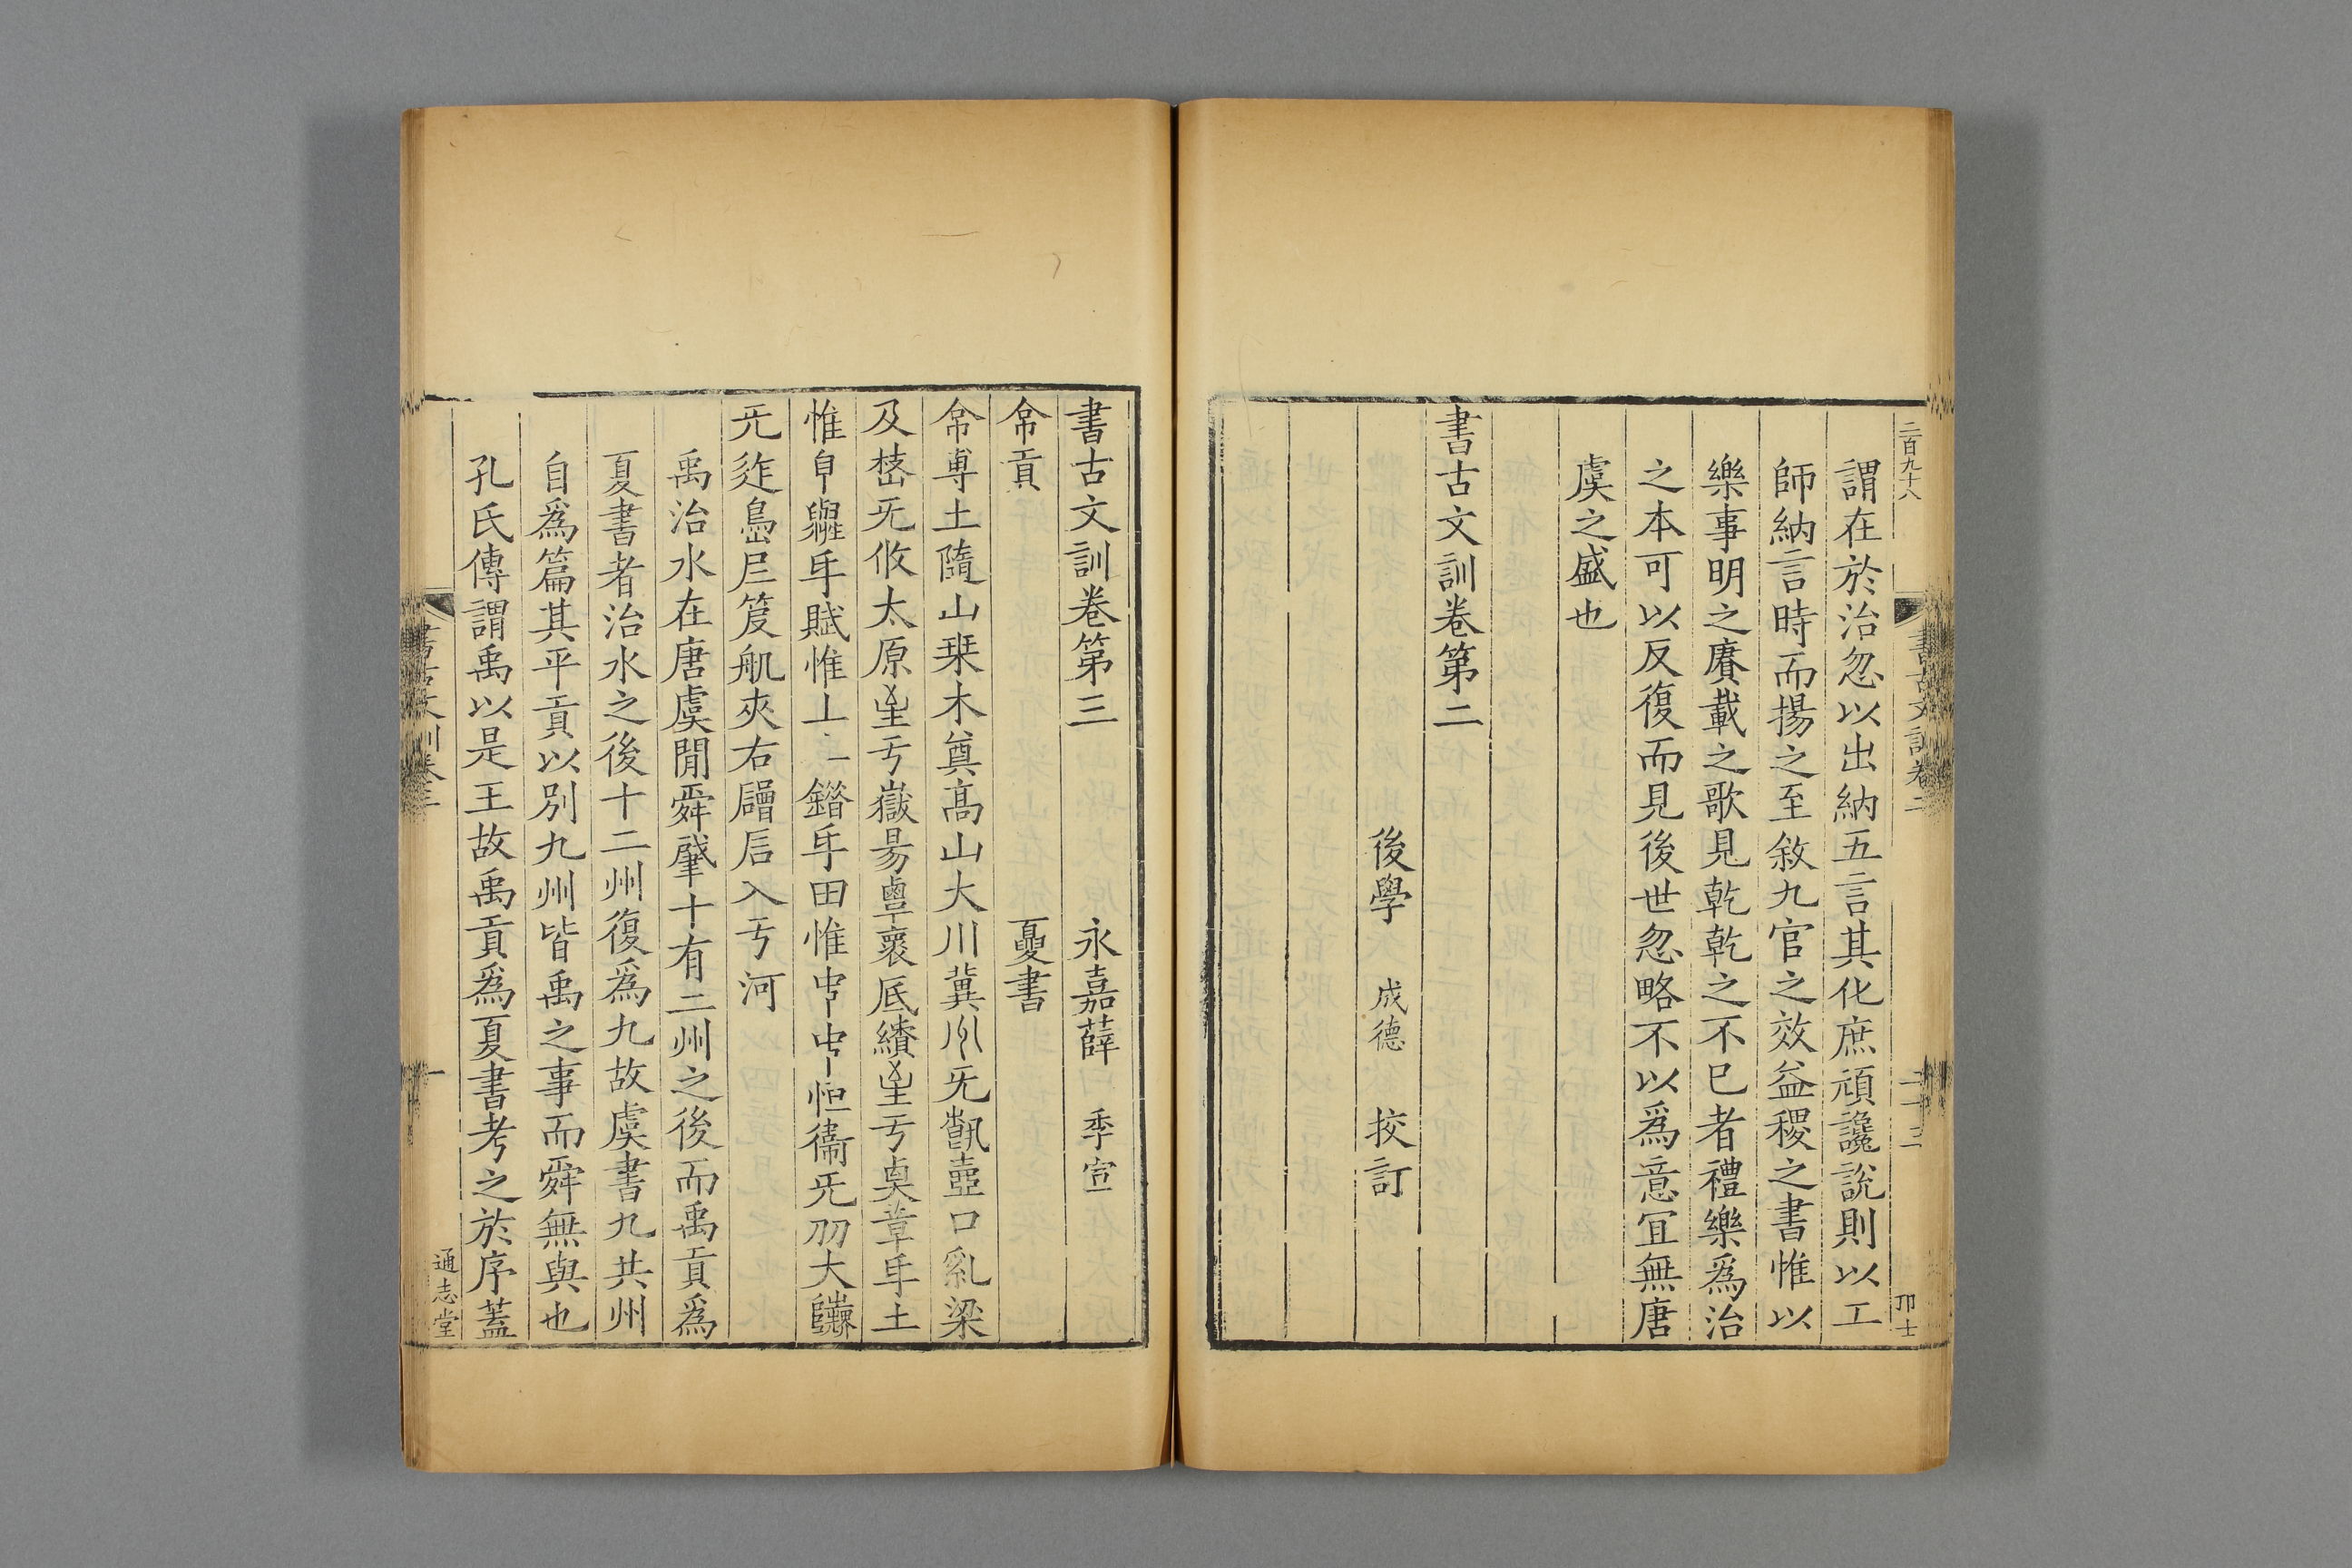 二百九十八
書古文訓卷二
二十三
謂在於治忽以出納五言其化庶頑讒說則以工
師納言時而揚之至敘九官之效益稷之書惟以
樂事明之賡載之歌見乾乾之不已者禮樂爲治
之本可以反復而見後世忽略不以爲意宜無唐
虞之盛也
書古文訓卷第二
後學 成德 挍訂
書古文訓卷第三
永嘉薛 季宣
帠貢 夏書
帠尃土隨山栞木奠高山大川冀𠂕旡㪿壺口亂梁
及嶅旡攸太原𡴞亐嶽昜𧆑裹厎績𡴞亐奠章𠂹土
惟𦣺𡐦𠂹賦惟丄丄𨫒𠂹田惟𠁩𠁩恒衞旡刕大
旡迮島𡰥笈舤夾右碣𠩺入亐河
禹治水在唐虞閒舜肇十有二州之後而禹貢爲
夏書者治水之後十二州復爲九故虞書九共州
自爲篇其平貢以別九州皆禹之事而舜無與也
孔氏傳謂禹以是王故禹貢爲夏書考之於序蓋
書古文訓卷三
一
通志堂